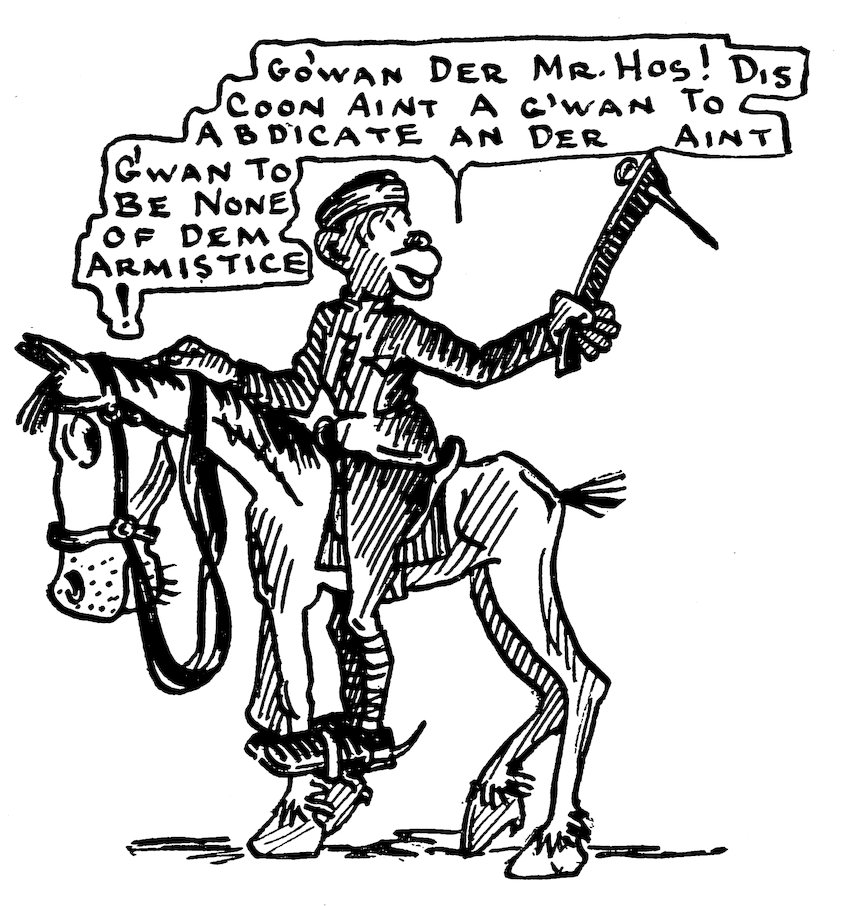 GO'WAN DER MR. HOS! DIS
COON AINT A G'WAN TO
ABDICATE AN DER AINT
G'WAN TO
BE NONE
OF DEM
ARMISTICE
!